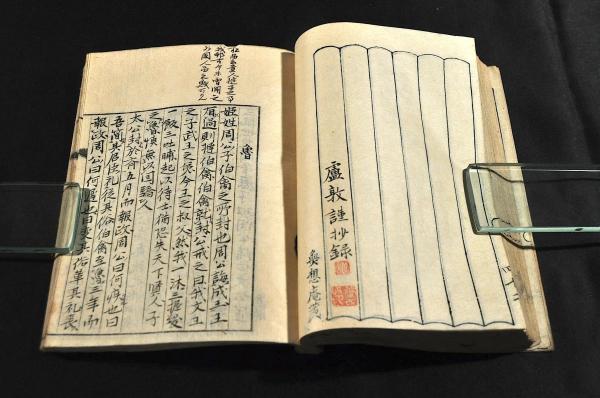 盧敦謹抄錄
魯
姬姓周公子伯禽之所封也周公誨成王王
有過則撻伯禽伯禽就封公戒之曰我文王
之子武王之弟今王之叔父然我一沐三握髮
一飯三吐哺起以待士猶恐失天下賢人子
之魯慎無以國驕人
太公封於齊五月而報政周公曰何疾也曰
吾簡其君臣禮從其俗伯禽至魯三年而
報政周公曰何遲也曰變其俗革其礼喪